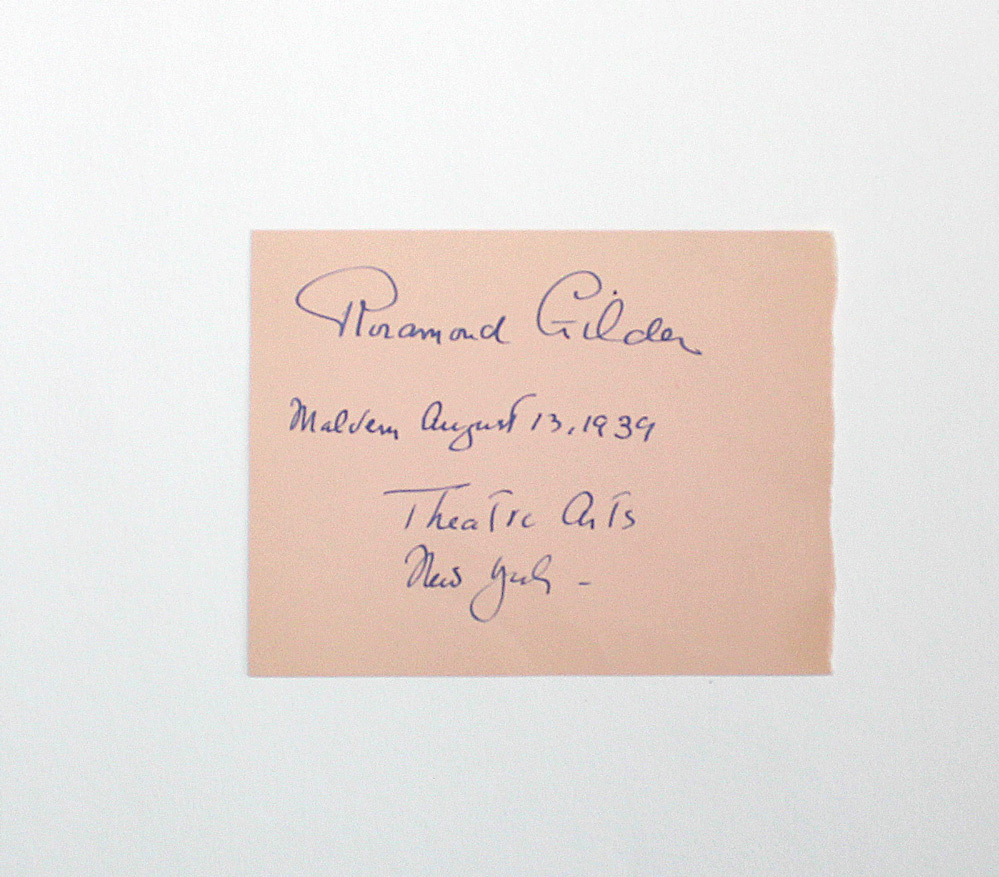 Rosamond Gilder
Malvern August 13, 1939
Theatre Arts
New York -